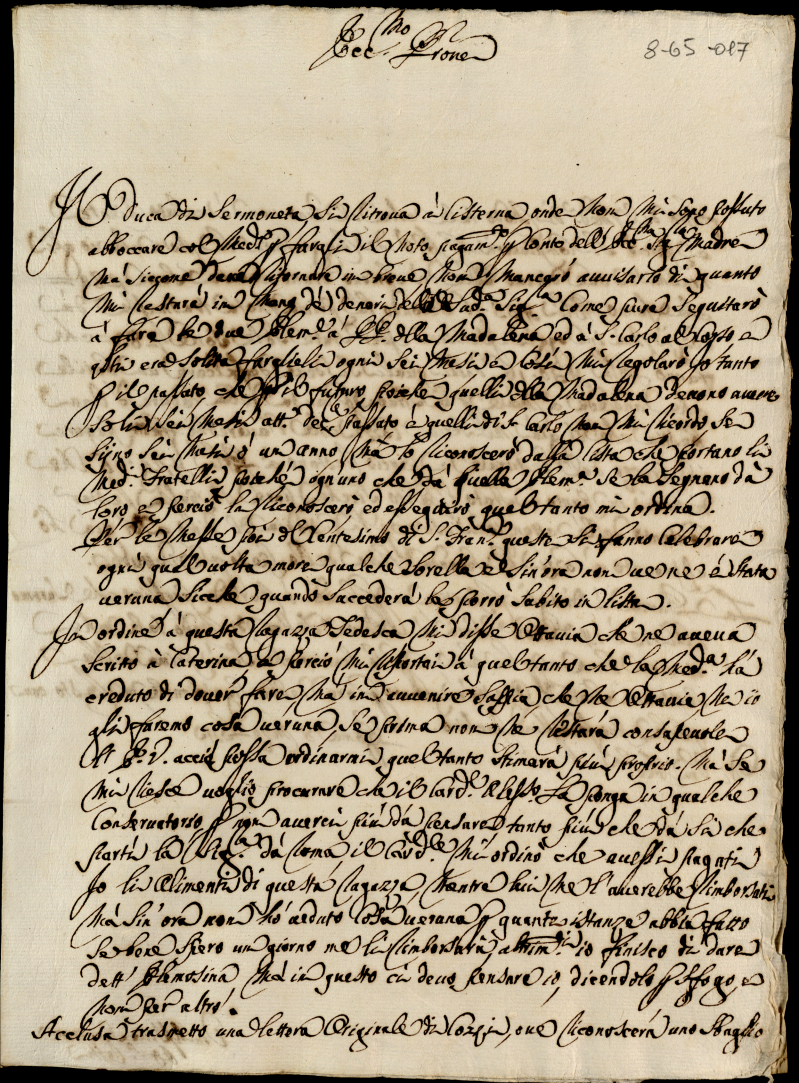 Ecc.mo Prone
8-65-017
Il Duca di Sermoneta si ritrova à Cisterna onde non mi sono possuto
abboccare col Med.o p fargli il noto pagam.to p Conto dell' Ecc.ma Sig.ra Madre
Mà siccome deve ritornare in breve non mancarò avvisarlo di quanto
mi restarà in mano de denari della Sud.a Sig.ra Come pure seguitarò
à fare le due Elem.e à PP. della Madalena ed à S. Carlo al Corso e
q.sti era solita farglieli ogni sei Mesi e così mi regolarò Io tanto
p il passato, che p il futuro poiche quelli della Madalena devono avere
solo sei Mesi att. del passato e quelli di S. Carlo non mi ricordo se
siino sei Mesi ò un anno mà lo riconoscerò dalla lista che portano li
Med.i Fratelli poiché ogn'uno che dà quella Elem.a se la segnano dà
loro e perciò la riconoscerò ed esseguirò quel tanto mi ordina.
Per le Messe poi del Centesimo di S. Fran.co queste si fanno Celebrare
ogni qual volta more qualche sorella e sin'ora non ve ne è stata
veruna sicche quando succederà le porrò subito in lista.
In ordine à questa ragazza Tedesca mi disse Ottavia che ne aveva
scritto à Caterina e perciò mi riportai à quel tanto che la Med.a hà
creduto di dover fare, mà in avvenire sappia, che ne Ottavia, ne io
gli faremo cosa veruna, se prima non ne restarà consapevole
V. E. acciò possa ordinarmi quel tanto stimarà più proprio. Mà se
mi riesce voglio procurare che il Card.le Aless.o La ponga in qualche
Conservatorio p non averci più dà pensare tanto più che dà si che
partì la Sig.ra dà Roma il Card.le mi ordinò che avessi pagati
Io li Alimenti di questa ragazza, mentre lui me l'averebbe rimborsati
mà sin'ora non hò veduto Cosa veruna p quante istanze abbia fatto
se bene spero un giorno me li rimborsarà, altrim.ti io finisco di dare
dett' Elemosina, mà in questo ci devo pensare io, dicendolo p sfogo, e
non per altro.
Acclusa trasmetto una lettera Originale di, ove riconoscerà uno sbaglio